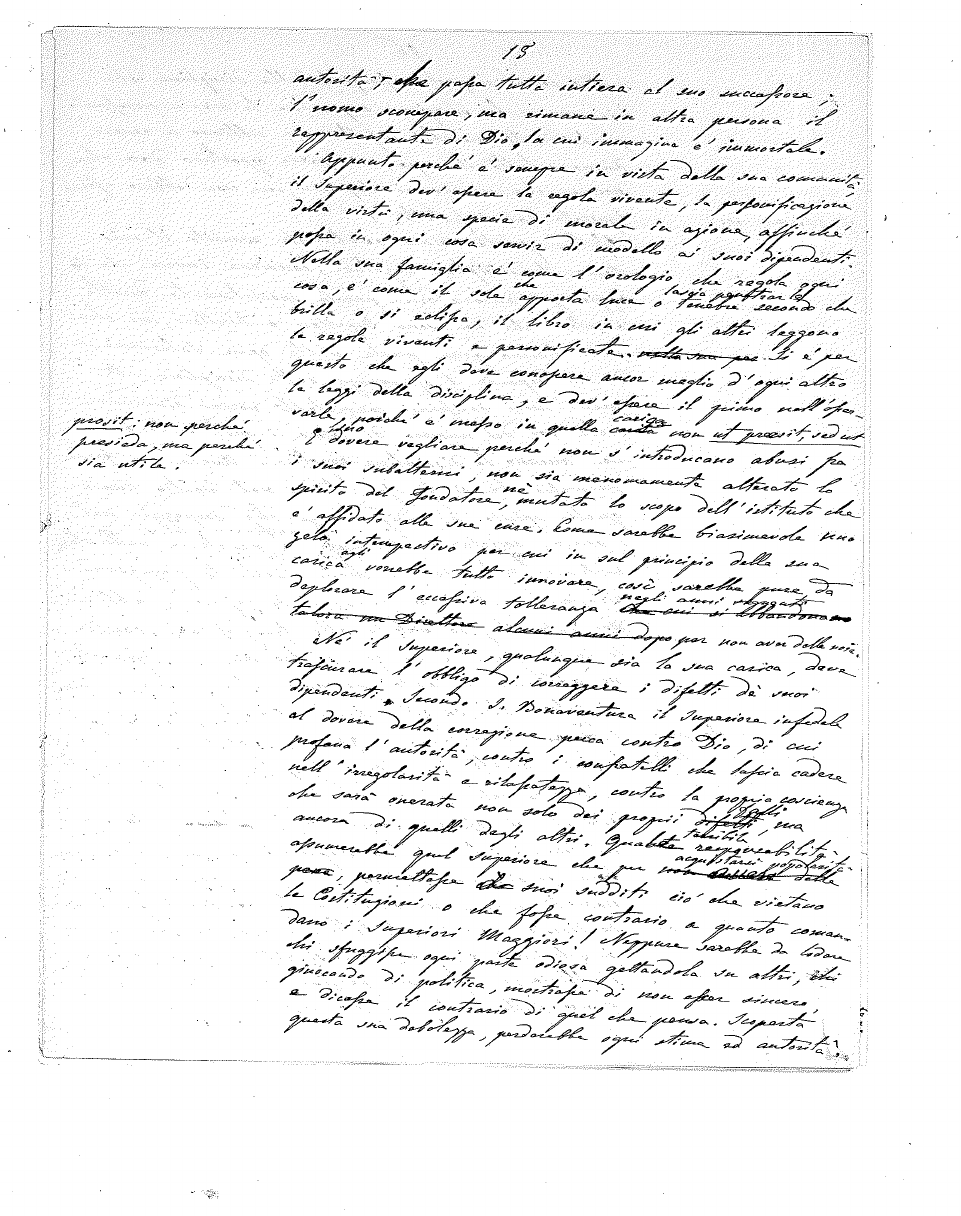 13
autorità, che passa tutta intiera al suo successore;
l'uomo scompare, ma rimane in altra persona il
rappresentante di Dio, la cui immagine è immortale.
Appunto perché è sempre in vista della sua comunità
il Superiore dev'essere la regola vivente, la personificazione
della virtù, una specie di morale in azione, affinché
possa in ogni cosa servir di modello ai suoi dipendenti.
Nella sua famiglia è come l'orologio che regola ogni
cosa, è come il sole che apporta luce o lascia penetrar le tenebre secondo che
brilla o si eclissa, il libro in cui gli altri leggono
le regole viventi e personificate. nella sua per Si è per
questo che egli deve conoscere ancor meglio d'ogni altro
le leggi della disciplina, e dev'essere il primo nell'osser-
varle, poiché è messo in quella carica non ut praesit, sed ut
prosit: non perché
presieda, ma perché
sia utile.
È suo dovere vegliare perché non s'introducano abusi fra
i suoi subalterni, non sia menomamente alterato lo
spirito del Fondatore, nè mutato lo scopo dell'istituto che
è affidato alle sue cure. Come sarebbe biasimevole uno
zelo intempestivo per cui in sul principio della sua
carica egli vorrebbe tutto innovare, così sarebbe pure da
deplorare l'eccessiva tolleranza negli anni che cui si abbandona
talora un Direttore alcuni anni dopo per non aver delle noie.
Nè il Superiore, qualunque sia la sua carica, deve
trascurare l'obbligo di correggere i difetti de' suoi
dipendenti. Secondo S. Bonaventura il Superiore infedele
al dovere della correzione pecca contro Dio, di cui
profana l'autorità, contro i confratelli che lascia cadere
nell'irregolarità e rilassatezza, contro la propria coscienza
che sarà onerata non solo dei proprii difetti, ma
ancora di quelli degli altri. Quale terribile responsabilità
assumerebbe quel superiore che per acquistarsi popolarità
pene, permettesse ai suoi sudditi ciò che vietano
le Costituzioni o che fosse contrario a quanto coman-
dano i Superiori Maggiori! Neppure sarebbe da lodare
chi sfuggisse ogni parte odiosa gettandola su altri, chi
giuocando di politica, mostrasse di non esser sincero
e dicesse il contrario di quel che pensa. Scoperta
questa sua debolezza, perderebbe ogni stima ed autorità